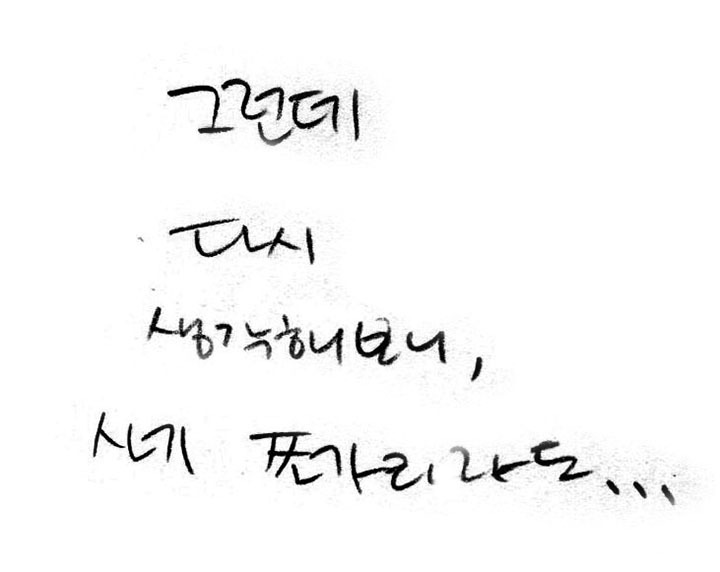 그런데
다시
생각해보니,
쪼가리라도...